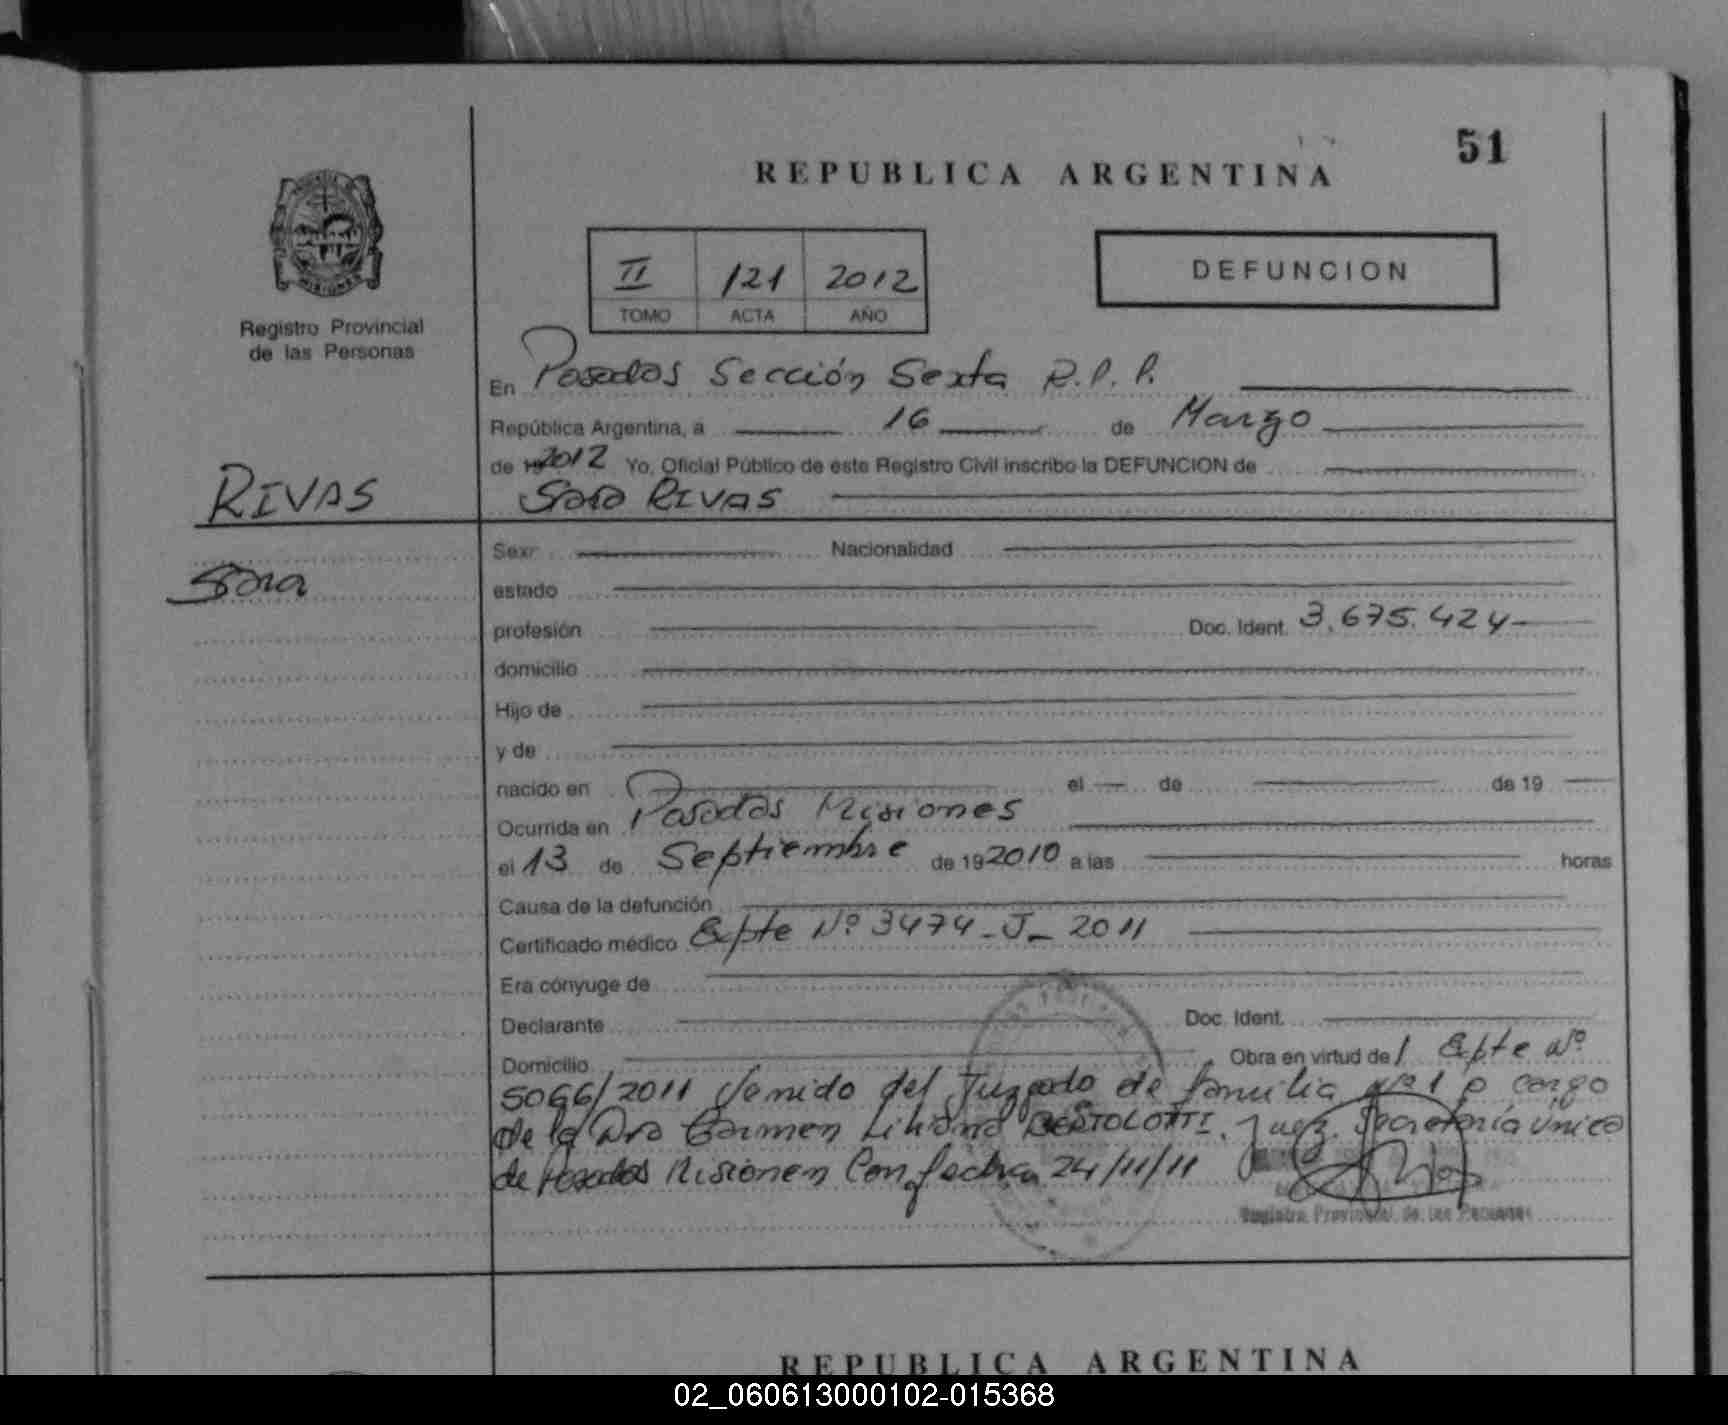 51
REPUBLICA ARGENTINA
II 121 2012
TOMO ACTA AÑO
DEFUNCION
MISIONES
Registro Provincial
de las Personas
En Posadas Sección Sexta R.P.P.
República Argentina, a 16 de Marzo
de 19 2012 Yo, Oficial Público de este Registro Civil inscribo la DEFUNCION de
RIVAS
Sara RIVAS
Sara
Sexo Nacionalidad
estado
profesión Doc. Ident. 3.675.424
domicilio
Hijo de
y de
nacido en el de de 19
Ocurrida en Posadas Misiones
el 13 de Septiembre de 19 2010 a las horas
Causa de la defunción
Certificado médico Expte Nº 3474-J-2011
Era cónyuge de
Declarante Doc. Ident.
Domicilio Obra en virtud de Expte Nº
5066/2011 Venido del Juzgado de familia Nº 1 a cargo
de la Dra Carmen Liliana BERTOLOTTI. Juez. Secretaría única
de Posadas Misiones Con fecha 24/11/11
Registro Provincial de las Personas
REPUBLICA ARGENTINA
02_060613000102-015368